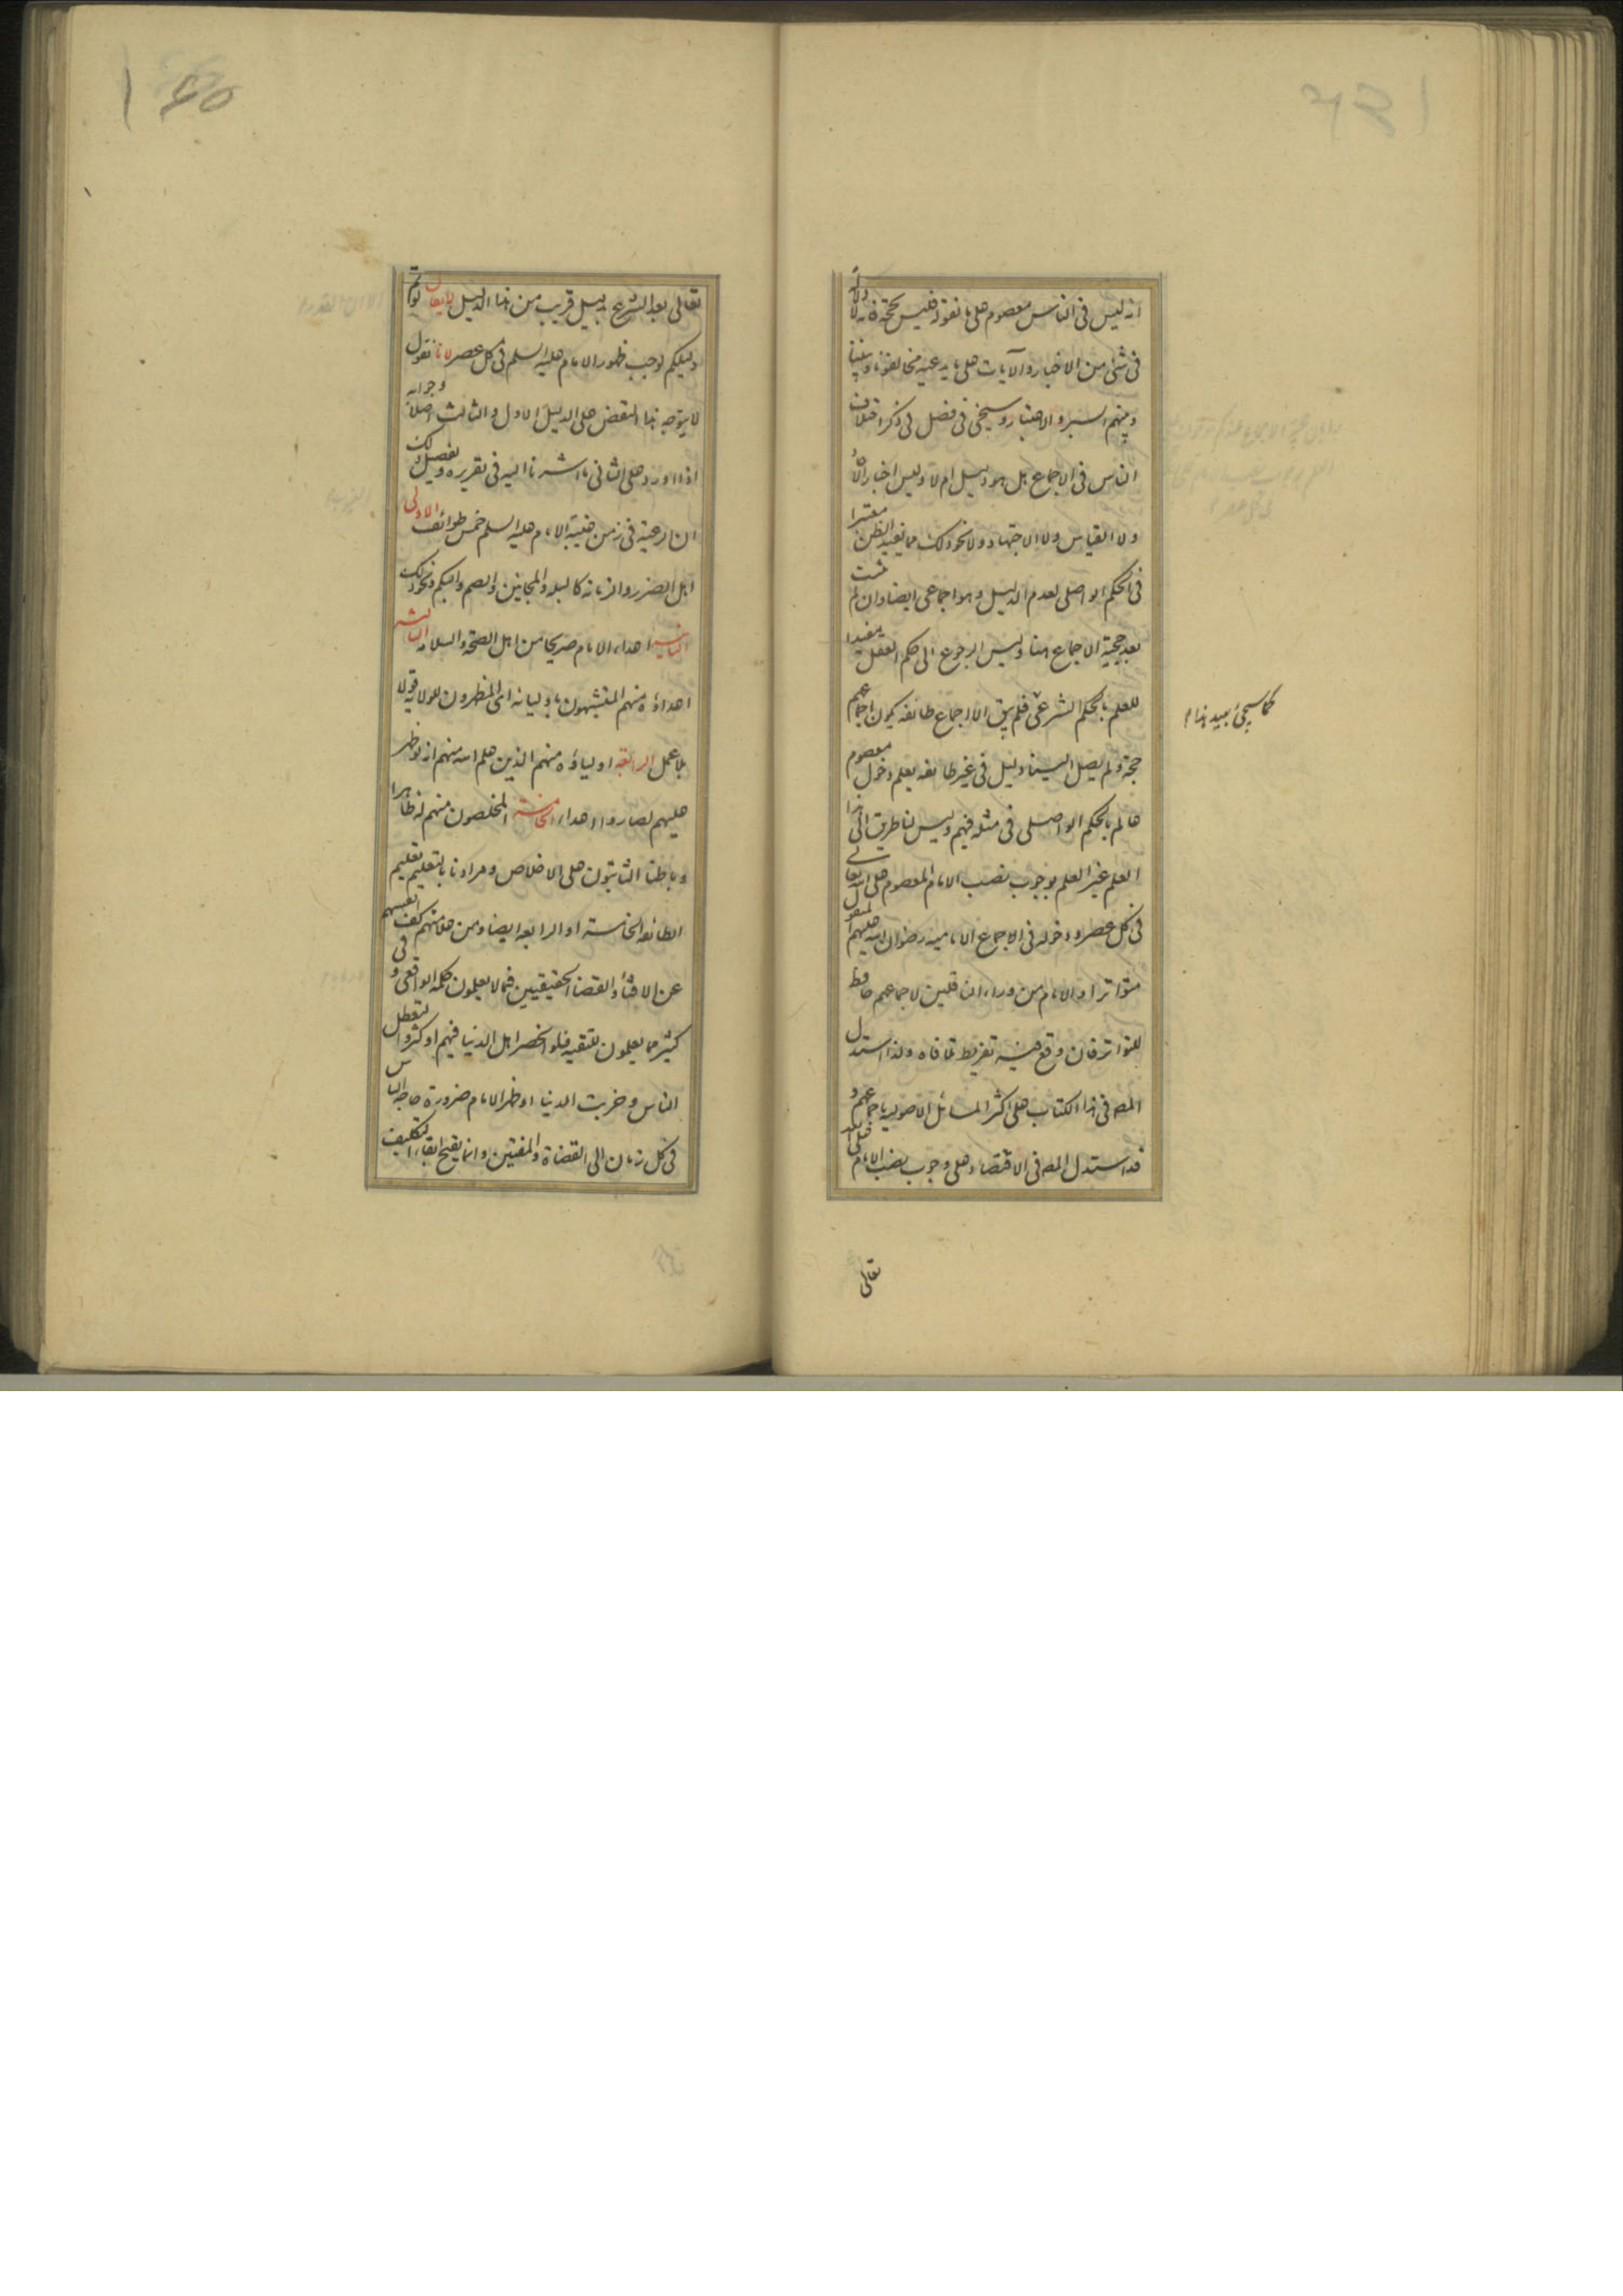 انه ليس فى الناس معصوم على ما نقوله فليس بحجة فانه لا دلالة
فى شئ من الاخبار والآيات على ما يدعيه مخالفونا وبيننا
وبينهم السبر والاعتبار وسيجئ فى فصل فى ذكر اختلاف
الناس فى الاجماع هل هو دليل ام لا وليس اخبار الآ
ولا القياس ولا الاجتهاد ولا نحو ذلك مما يفيد الظن معتبرا
فى الحكم الواصلى لعدم الدليل وهو اجماعى ايضا وان لم يثبت
بعد حجية الاجماع هنا وليس الرجوع الى حكم العقل مفيدا
للعلم بالحكم الشرعى فلم يبق الا اجماع طائفة يكون اجماعهم
حجة ولم يصل الينا دليل فى غير طائفة يعلم دخول معصوم
عالم بالحكم الواصلى فى مثله فيهم وليس لنا طريق الى هذا
العلم غير العلم بوجوب نصب الامام المعصوم على الله تعالى
فى كل عصر ودخوله فى الاجماع الامامية رضوان الله عليهم المنقول
متواترا والامام من وراء الناقلين لاجماعهم حافظ
للتواتر فان وقع فيه تفريط تلافاه ولذا استدل
المصه فى هذا الكتاب على اكثر المسائل الاصولية باجماعهم و
قد استدل المصه فى الاقتصاد على وجوب نصب الامام على الله
تعالى
كما سيجئ بعيد هذا م
تعالى بعد الشرع بدليل قريب من هذا الدليل لا يقال لو تم
دليلكم لوجب ظهور الامام عليه السلم فى كل عصر لانا نقول
لا يتوجه هذا النقض على الدليل الاول والثالث اصلا وجوابه
اذا اورد على الثانى ما اشرنا اليه فى تقريره وتفصيل ذلك
ان الرعية فى زمن غيبة الامام عليه السلم خمس طوائف الاولى
اهل الضرر والزمانة كالبله والمجانين والصم والبكم ونحو ذلك
الثانية اعداء الامام صريحا من اهل الصحة والسلامة الثالثة
اعداؤه منهم المتشبهون باوليائه اى المظهرون للولاية قولا
بلا عمل الرابعة اولياؤه منهم الذين علم الله منهم انه لو ظهر
عليهم لصاروا اعداء الخامسة المخلصون منهم له ظاهرا
وباطنا الثابتون على الاخلاص ومرادنا بالتعليم تعليم
الطائفة الخامسة او الرابعة ايضا ومن علامتهم كف انفسهم
عن الافتاء والقضاء الحقيقيين فيما لا يعلمون حكمه الواقعى و فى
كثير مما يعلمون للتقية فلو انحصر اهل الدنيا فيهم او كثروا لتعطل
الناس وخربت الدنيا او ظهر الامام ضرورة حاجة الناس
فى كل زمان الى القضاة والمفتين وانما يقبح ابقاء التكليف